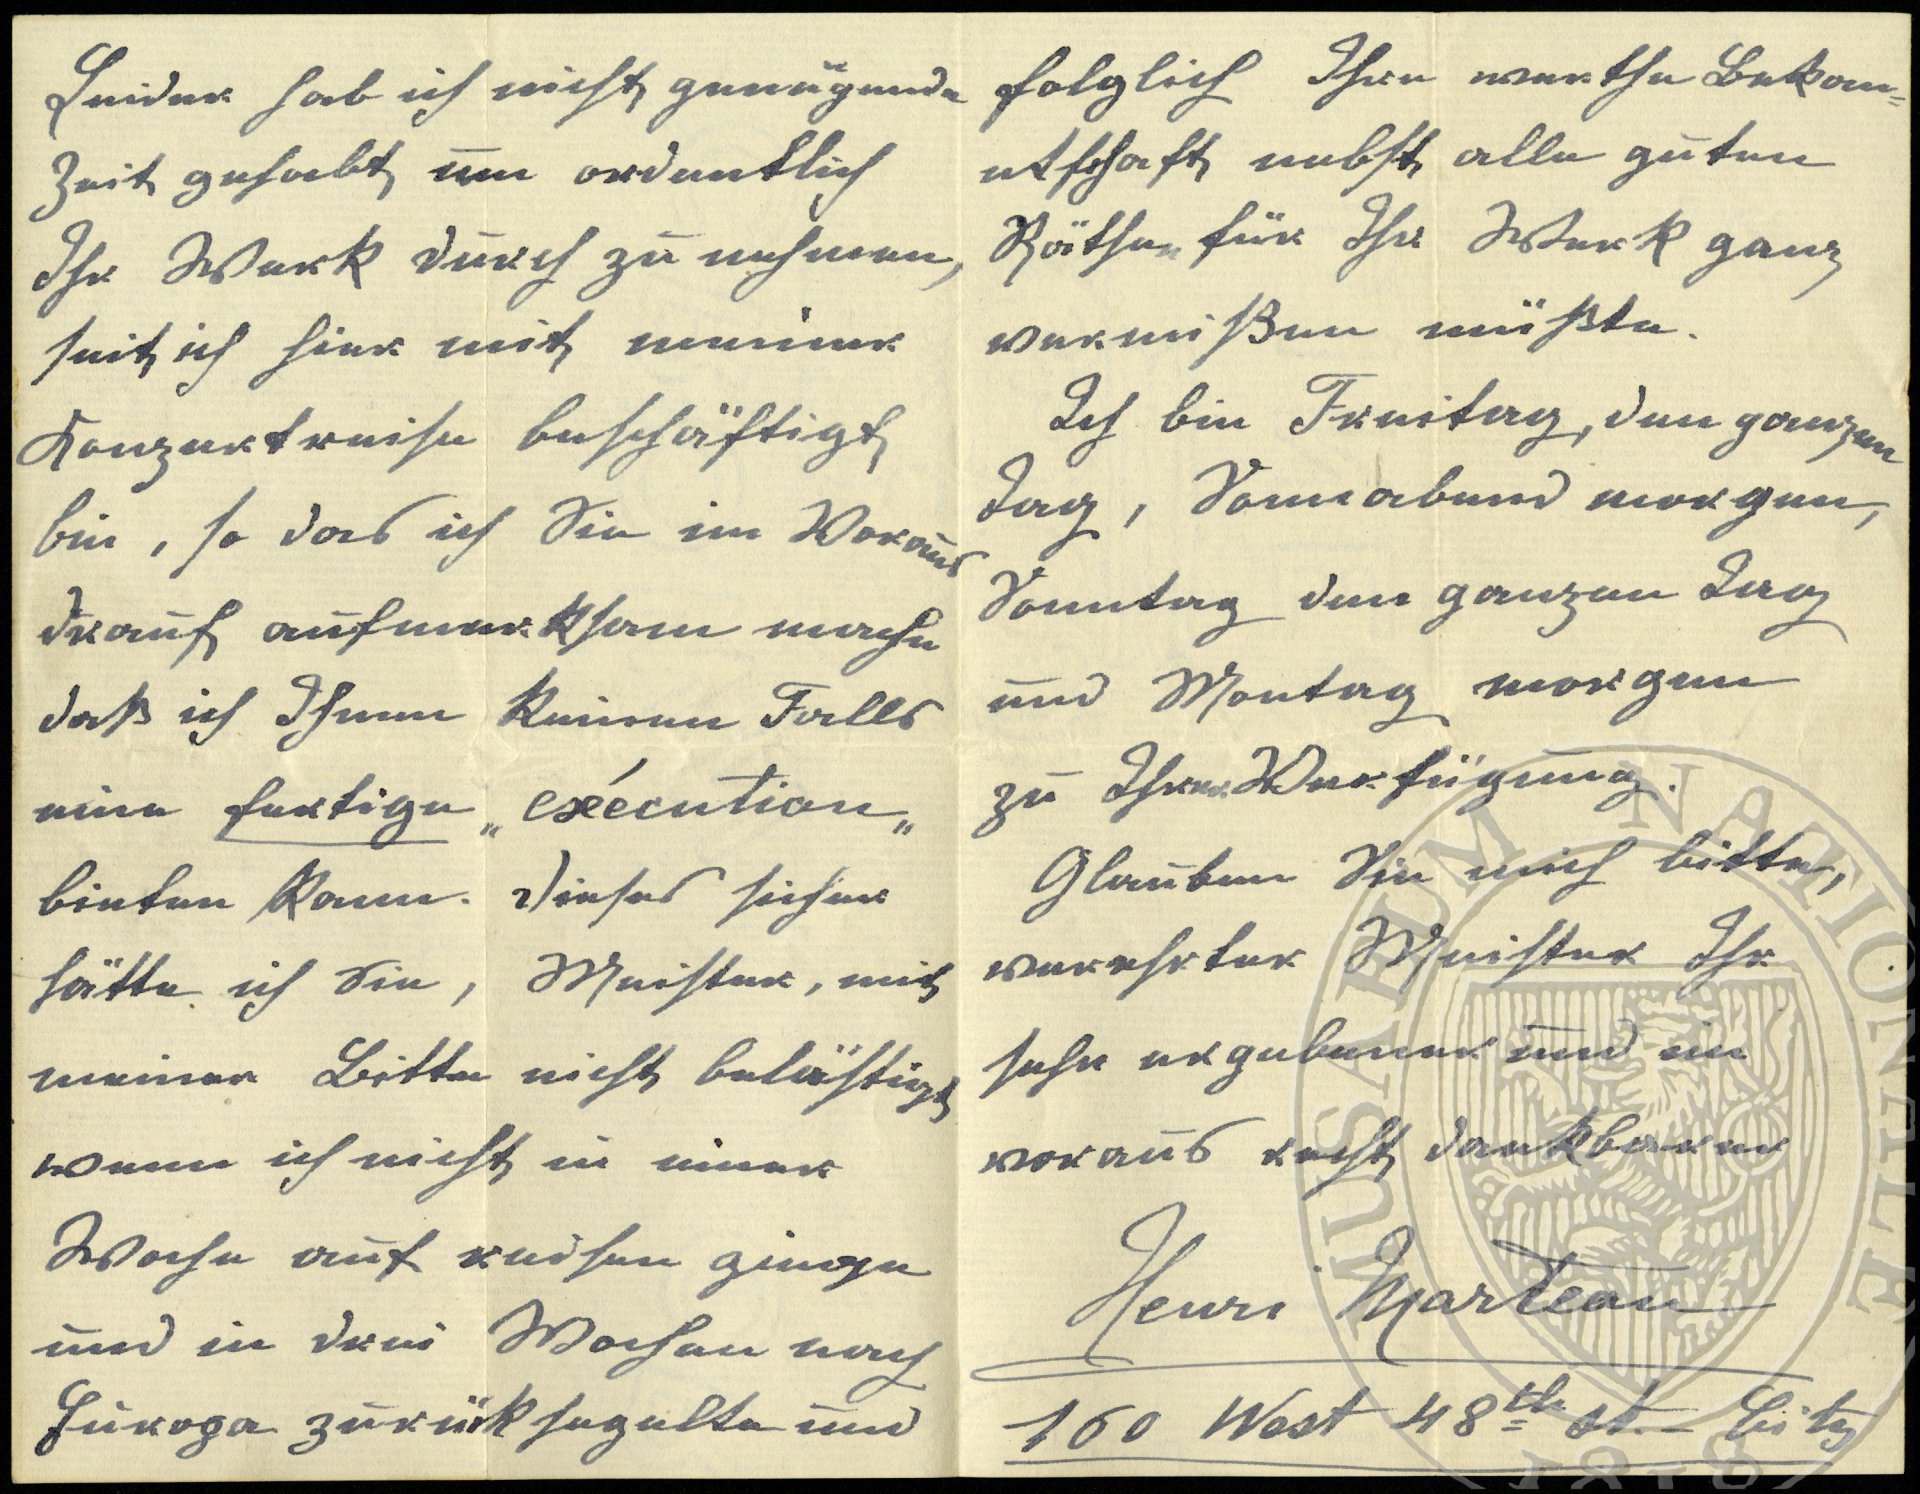 Leider hab ich nicht genügende
Zeit gehabt um ordentlich
Ihr Werk durch zu nehmen,
seit ich hier mit meiner
Konzertreise beschäftigt
bin, so das ich Sie im Voraus
drauf aufmerksam mache
daß ich Ihnen keinen Falls
eine fertige „exécution„
bieten kann. Dieses sicher
hätte ich Sie, Meister, mit
meiner Bitte nicht belästigt
wenn ich nicht in einer
Woche auf reisen ginge
und in drei Wochen nach
Europa zurück segelte und
folglich Ihre werthe Bekan=
ntschaft nebst alle guten
Räthen für Ihr Werk ganz
vermißen müßte.
Ich bin Freitag, den ganzen
Tag, Sonnabend morgen,
Sonntag den ganzen Tag
und Montag morgen
zu Ihrer Verfügung.
Glauben Sie mich bitte,
verehrter Meister Ihr
sehr ergebener und im
voraus recht dankbarer
Henri Marteau
160 West 48th st. City
MUSAEUM NATIONALE
1818